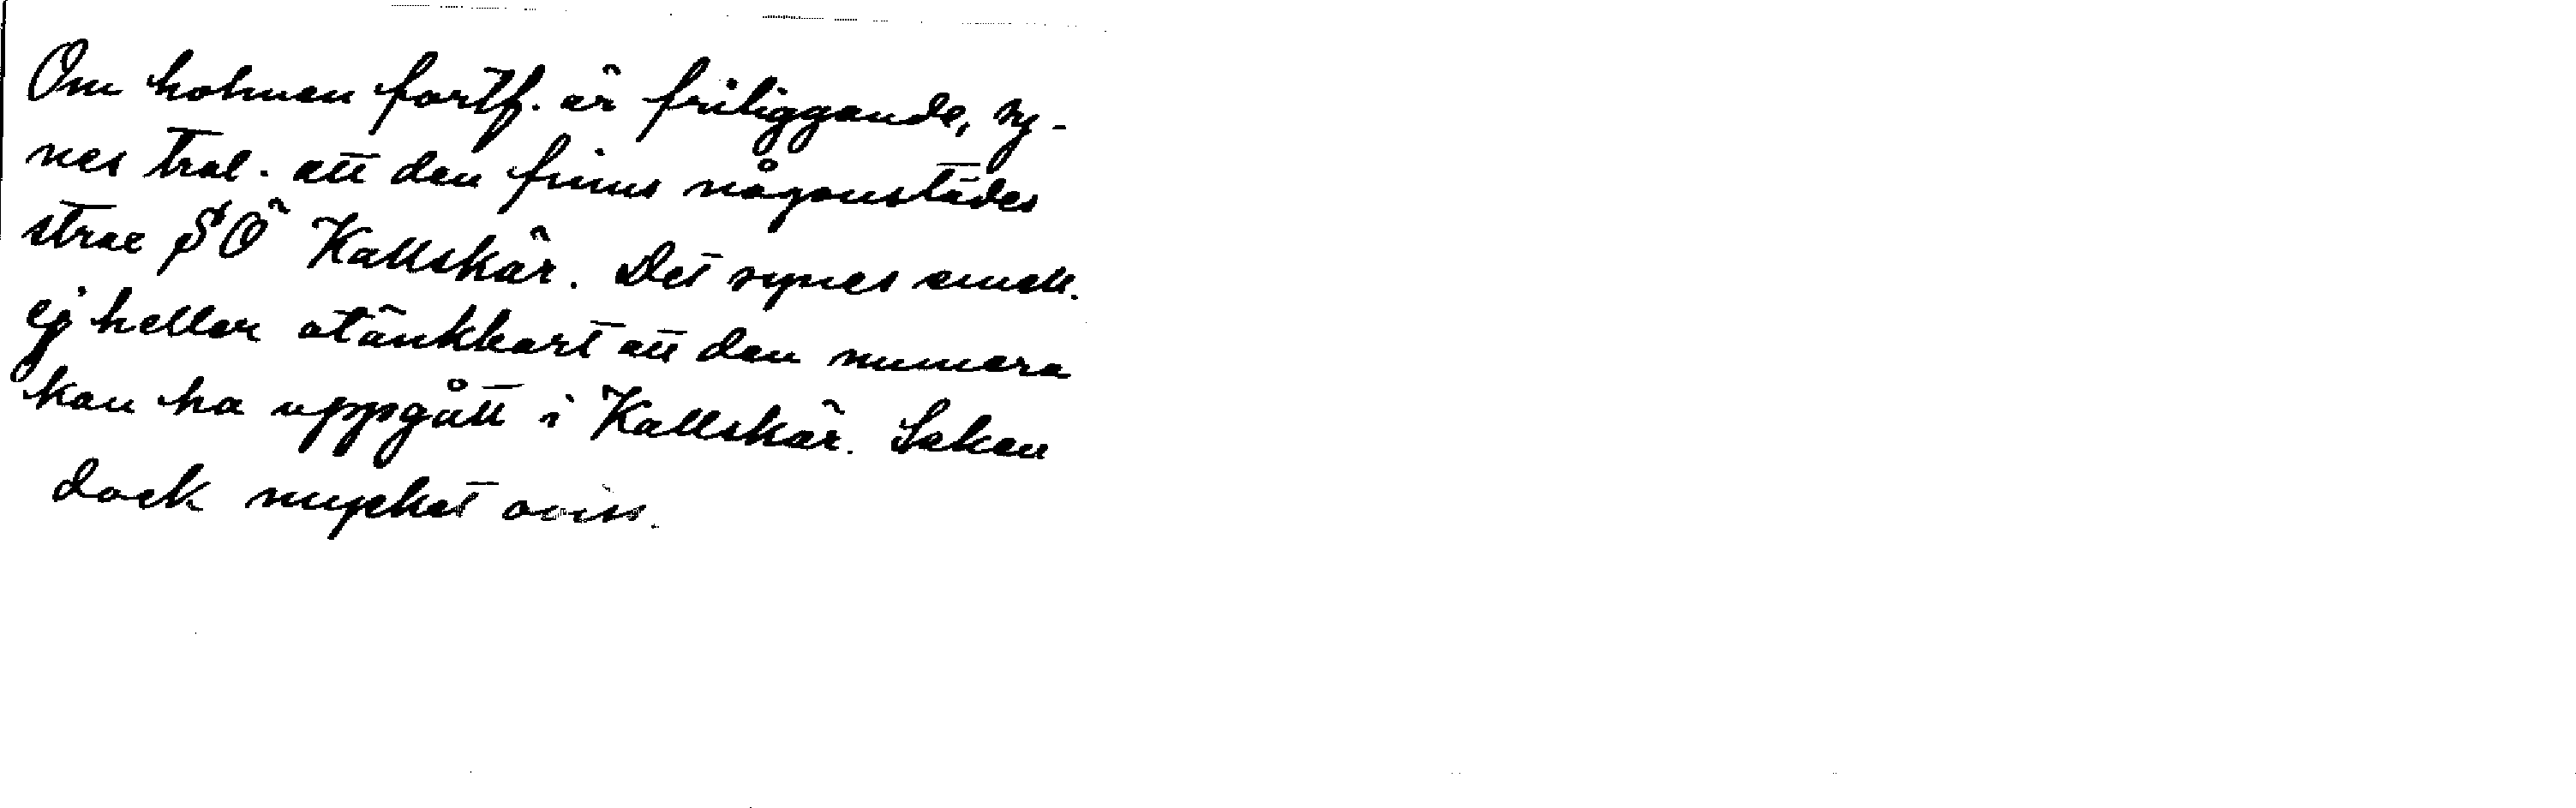 Om holmen fortf. är friliggande, sy-
nes trol. att den finns någonstädes
strax SÖ Kallskär. Det synes emell.
ej heller otänkbart att den numera
kan ha uppgått i Kallskär. Saken
dock mycket oviss.